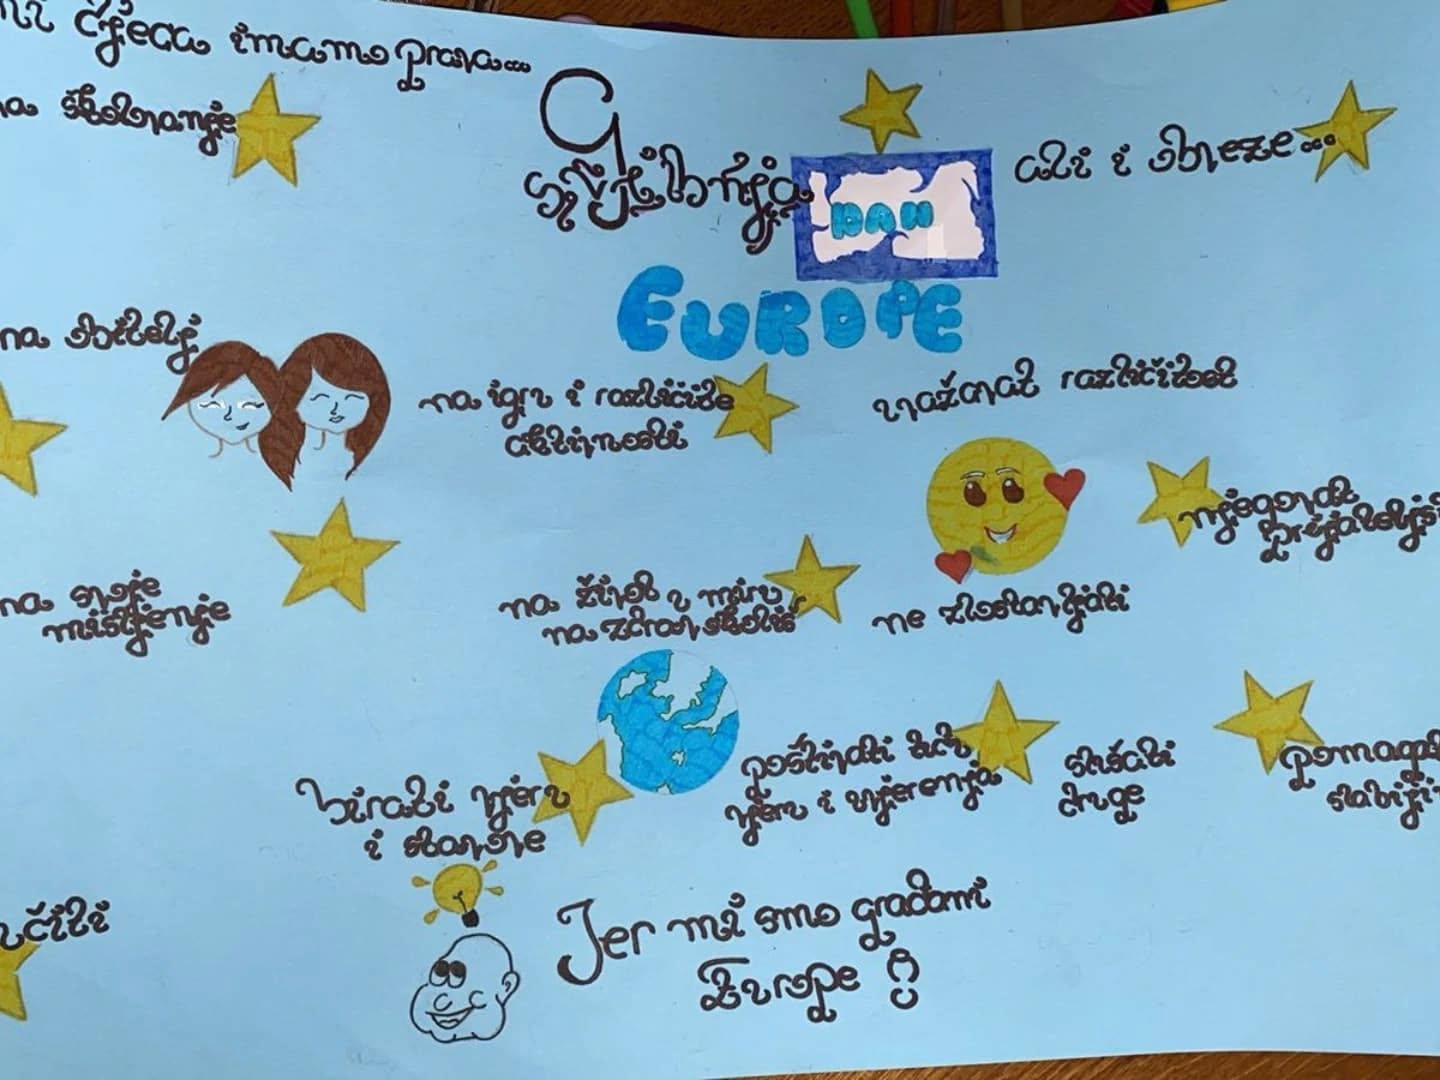 djeca imamo prava...
na školovanje
9. svibnja
DAN
EUROPE
ali i obveze...
na obitelj
na igru i različite
aktivnosti
uvažavat različitost
njegovat
prijateljst
na svoje
mišljenje
na život u miru,
na zdrav okoliš
ne zlostavljati
birati vjeru
i stavove
poštivati
vjeru i uvjerenja
slušati
druge
pomagat
slabiji
učiti
Jer mi smo građani
Europe